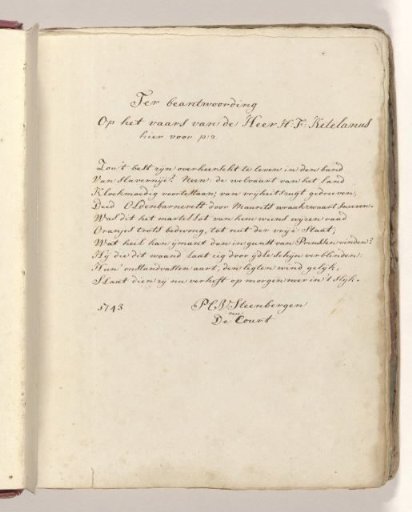 Ter beantwoording
Op het vaars van de Heer H: F: Ketelanus
hier voor p:
Zou't best zyn overheerscht te leven in den band
Van Slavernije? Neen: de welvaart van het land
Kloekmoedig voortestaan; van vryheits zugt gedreven,
Deed Oldenbarnevelt door Maurits wraakzwaart
Was dit het martel lot van hem wiens wyzen raad
Oranjes trots bedwong, tot nut der vrije Staat,
Wat heil kan ymant dan in gunst van Princen vinden?
Hy die dit waand laat zig door ydle schyn verblinden.
Hun aart, den ligten wind gelyk,
Slaat dien zy nu verheft op morgen neer in 't slyk.
1743
P C Steenbergen
De Court